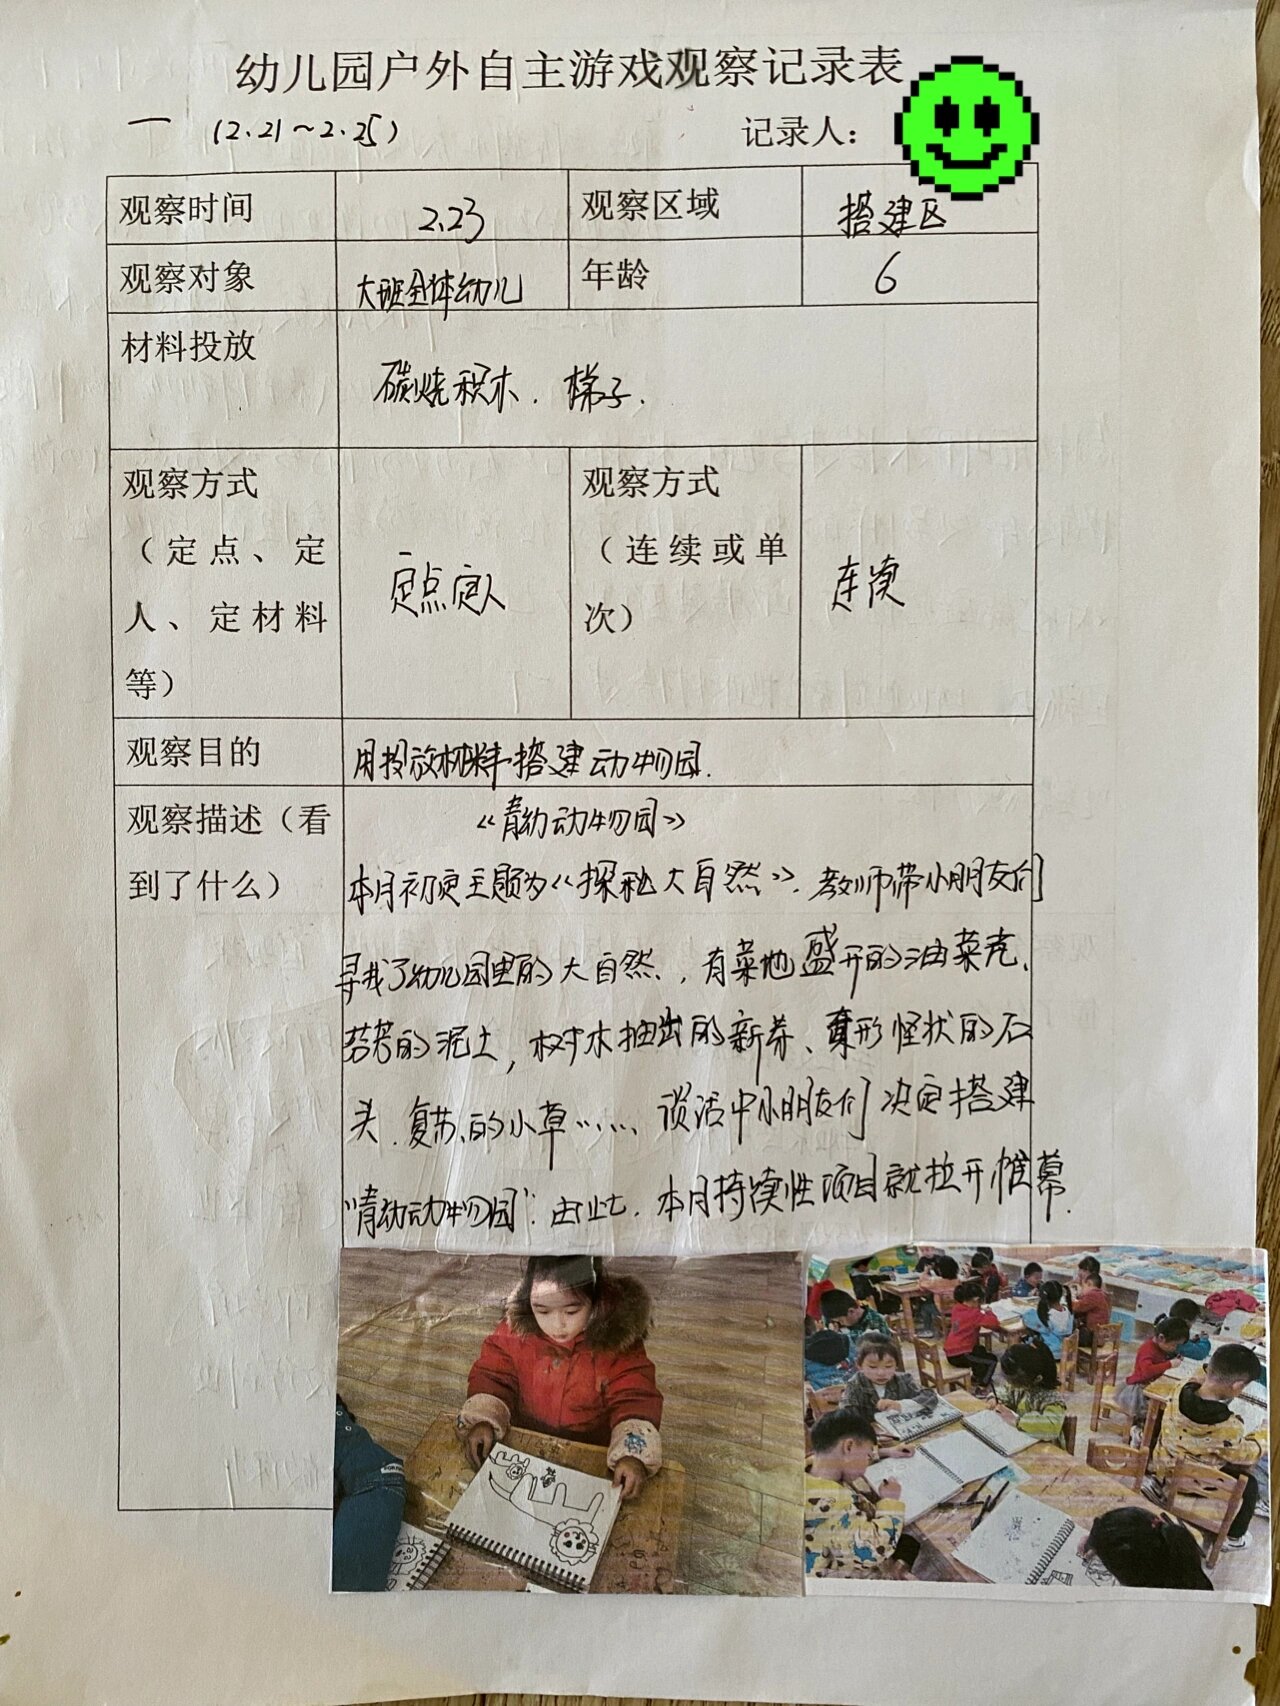 幼儿园户外自主游戏观察记录表
一 (2.21～2.25) 记录人：
观察时间 2.23 观察区域 搭建区
观察对象 大班全体幼儿 年龄 6
材料投放
碳烧积木．梯子．
观察方式 观察方式
（定点、定 （连续或单
人、定材料 定点定人 次） 连续
等）
观察目的 用投放材料搭建动物园．
观察描述（看 《青幼动物园》
到了什么） 本月初定主题为《探秘大自然》．教师带小朋友们
寻找了幼儿园里的大自然．，有菜地盛开的油菜花、
的泥土，树木抽出的新芽、奇形怪状的石
头．复苏的小草……．谈话中小朋友们决定搭建
“青幼动物园”．由此．本月持续性项目就拉开帷幕．